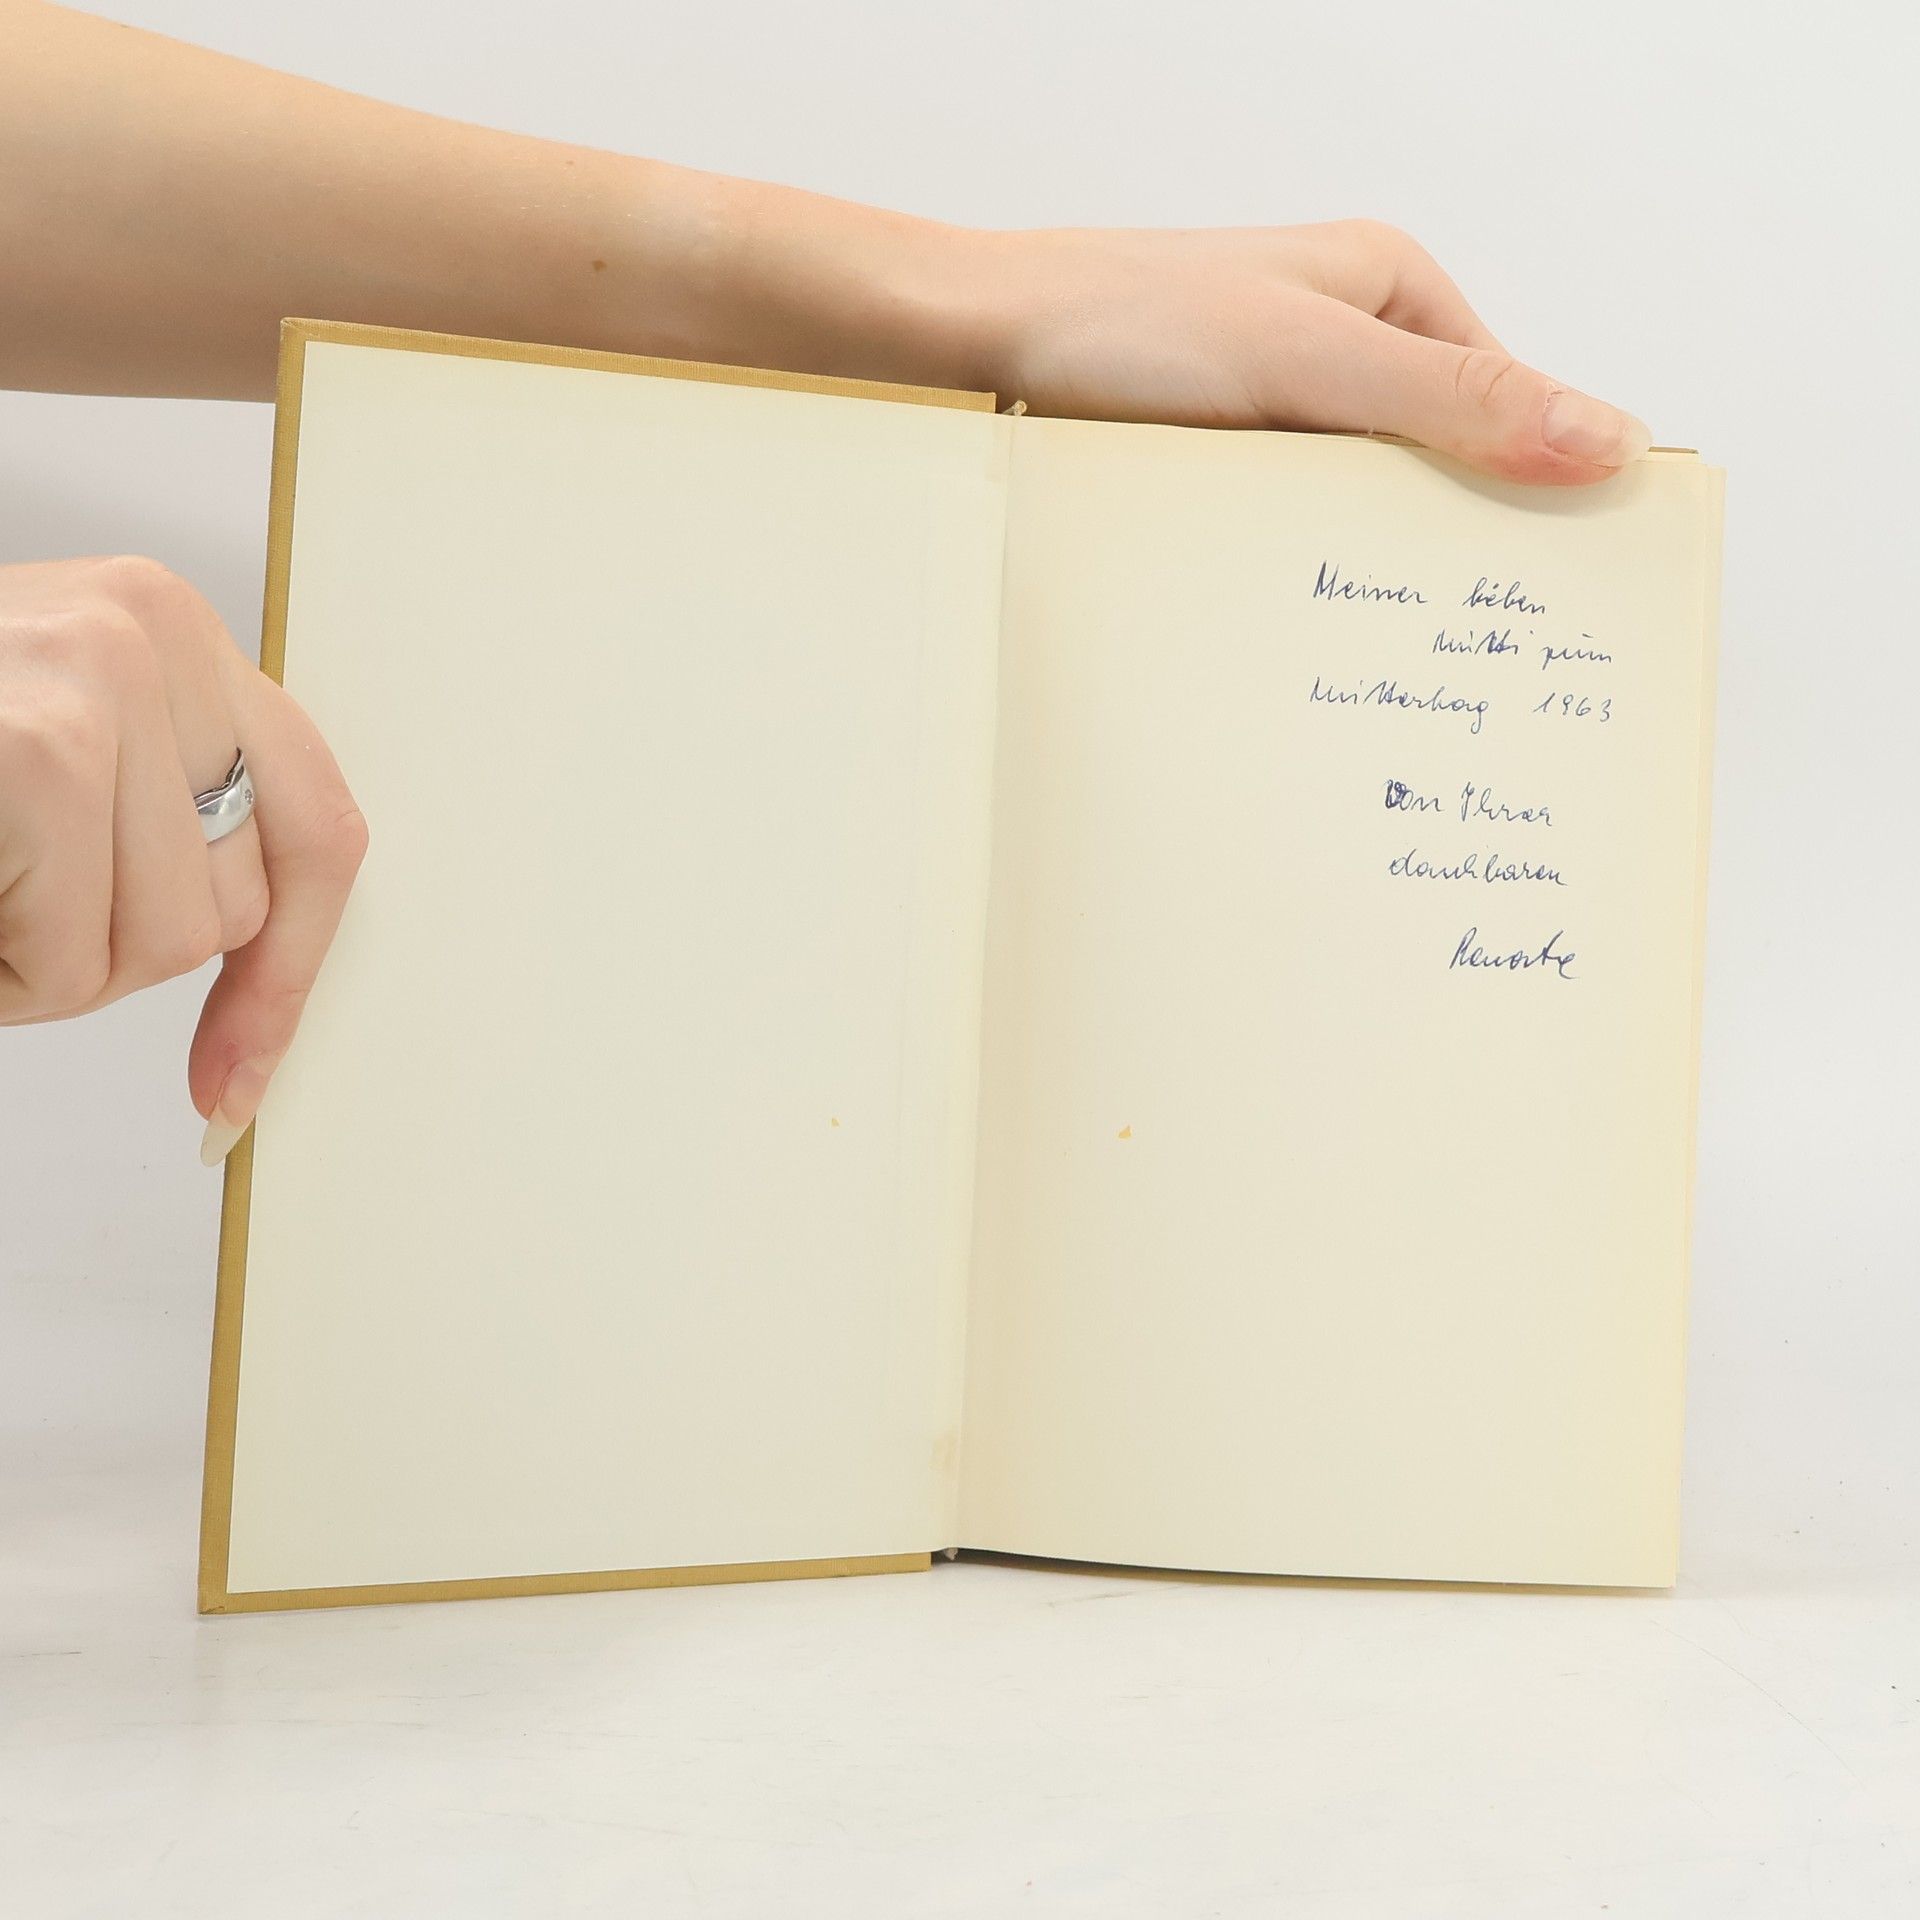 Meiner lieben
Mutti zum
Muttertag 1963
Von Ihrer
dankbaren
Renate